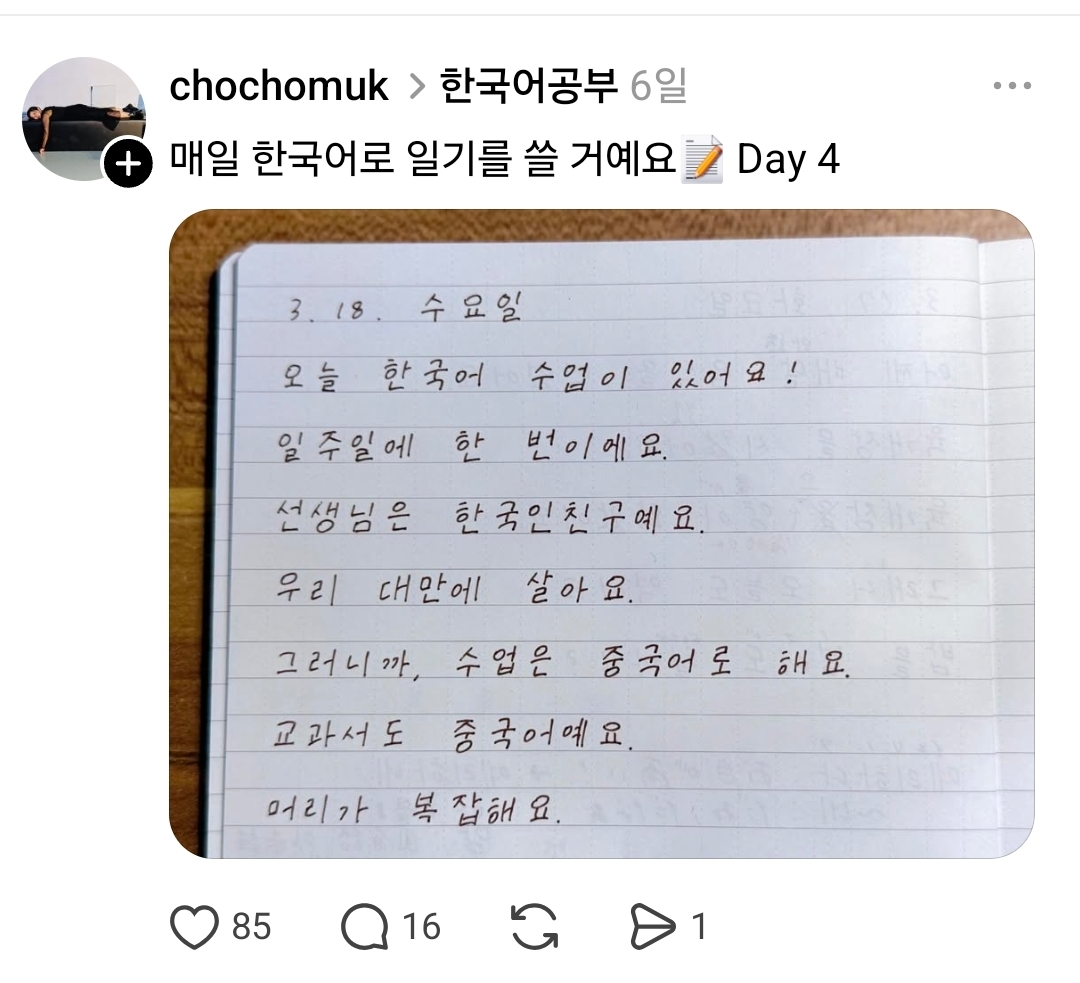 chochomuk > 한국어공부 6일
매일 한국어로 일기를 쓸 거예요📝 Day 4
3. 18. 수요일
오늘 한국어 수업이 있어요!
일주일에 한 번이에요.
선생님은 한국인친구예요.
우리 대만에 살아요.
그러니까, 수업은 중국어로 해요.
교과서도 중국어예요.
머리가 복잡해요.
85 16 1